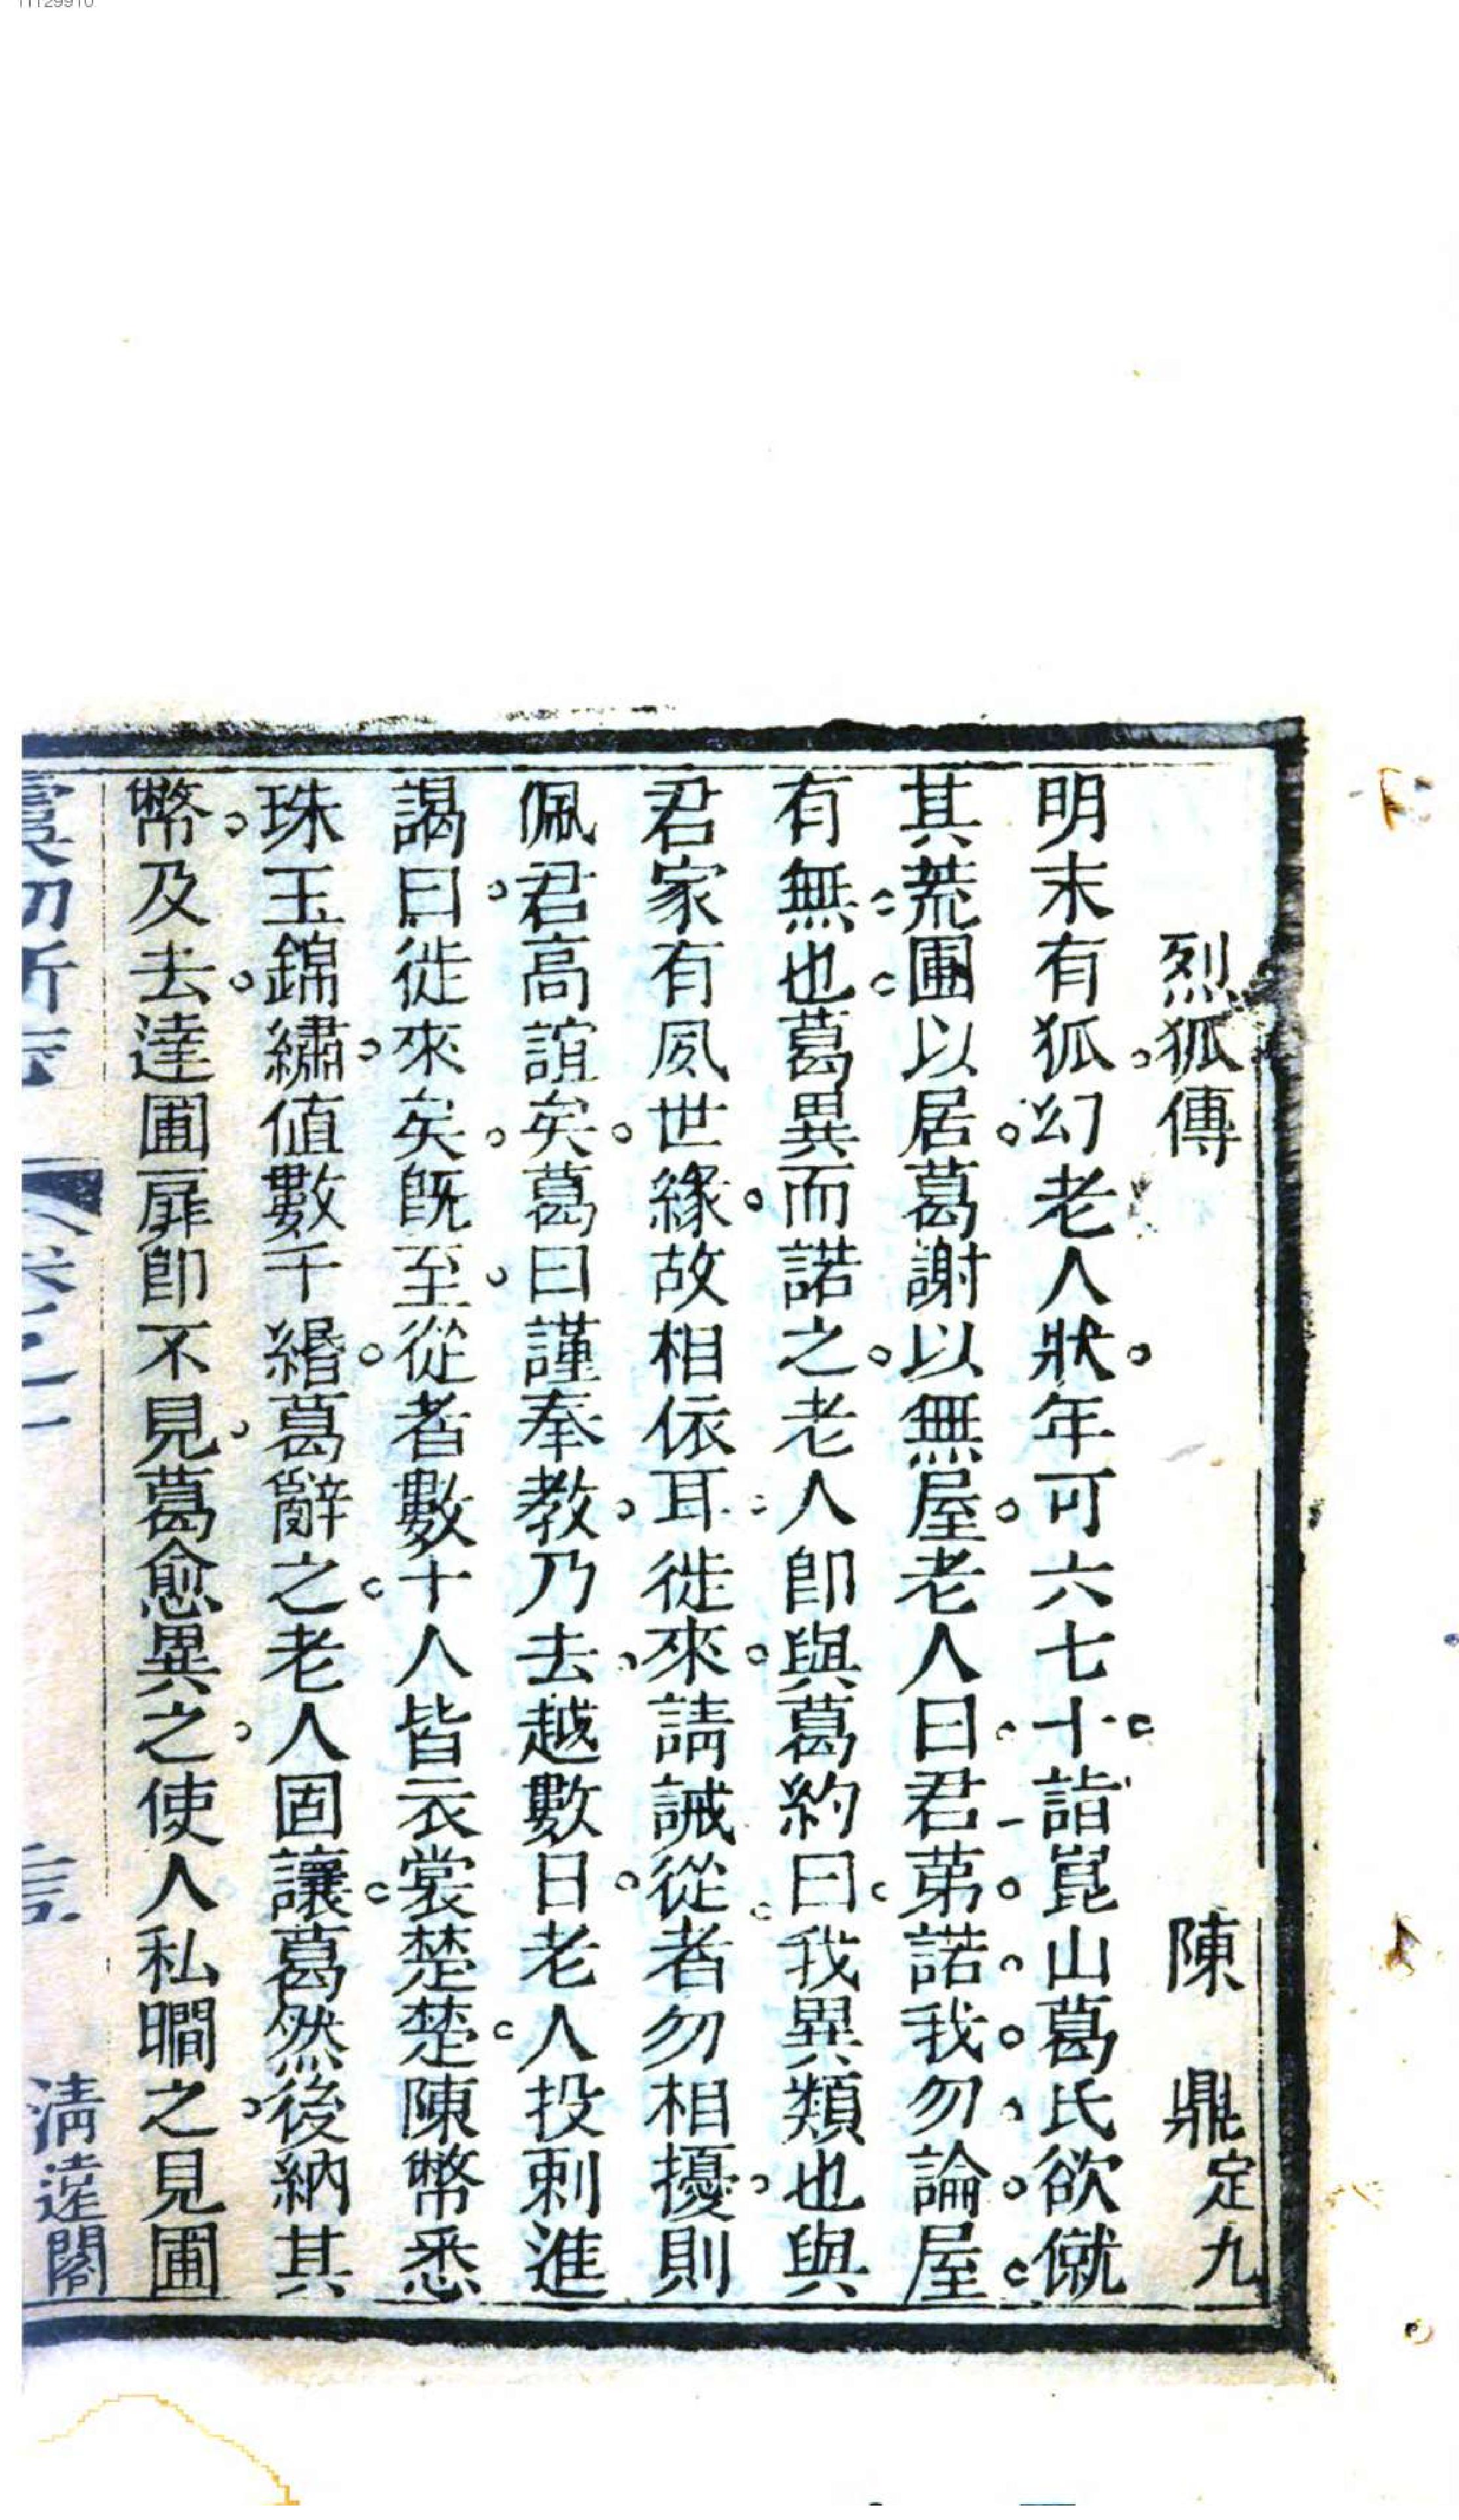 烈狐傳　陳　鼎定九
明末有狐幻老人狀年可六七十詣崑山葛氏欲僦
其荒圃以居葛謝以無屋老人曰君苐諾我勿論屋
有無也葛異而諾之老人卽與葛約曰我異類也與
君家有夙世緣故相依耳徙來請誡從者勿相擾則
佩君高誼矣葛曰謹奉教乃去越數日老人投刺進
謁曰徙來矣旣至從者數十人皆衣裳楚楚陳幣悉
珠玉錦繡值數千緡葛辭之老人固讓葛然後納其
幣及去達圃扉卽不見葛愈異之使人私瞷之見圃
虞初新志
清遠閣